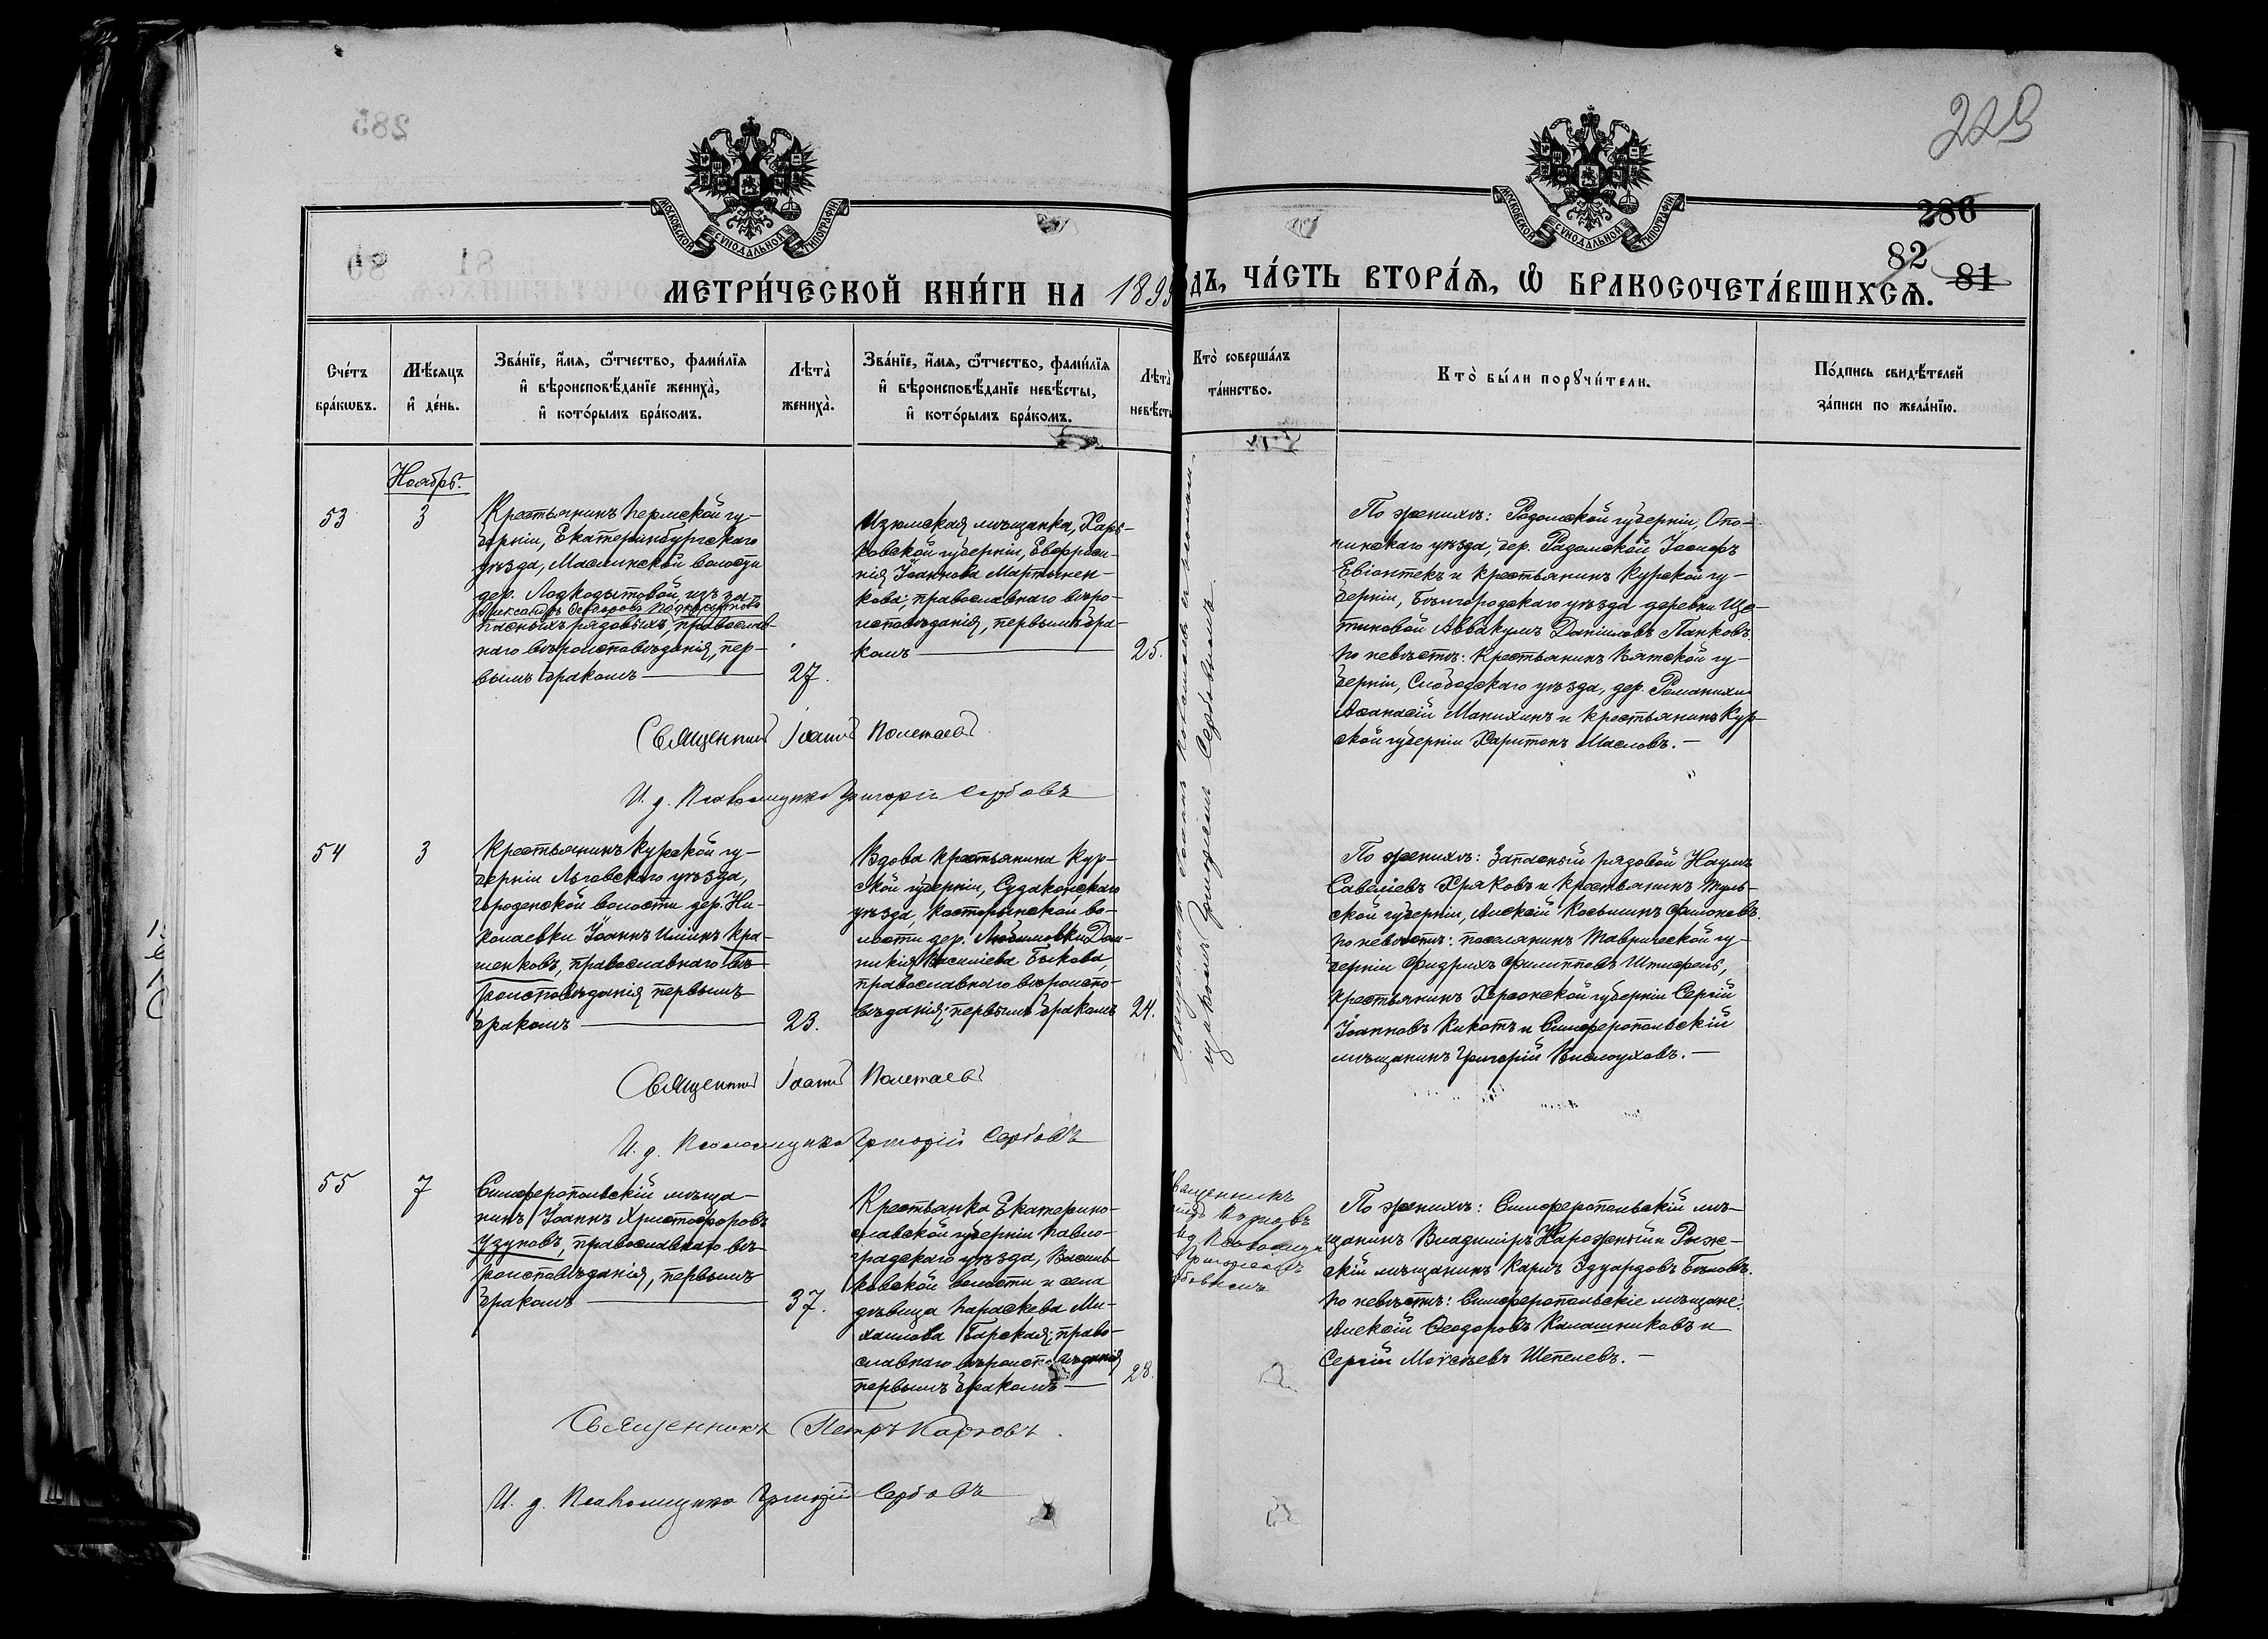 223
286
82
81
МОСКОВСКОЙ СУНОДАЛЬНОЙ ТИПОГРАФІИ
МОСКОВСКОЙ СУНОДАЛЬНОЙ ТИПОГРАФІИ
МЕТРИ́ЧЕСКОЙ КНИ́ГИ НА 1899
дъ, ЧА́СТЬ ВТОРА́Ѧ, Ѽ БРАКОСОЧЕТА́ВШИХСѦ.
Сче́тъ бра́кѡвъ.
Мѣ́сяцъ и҆ де́нь.
Зва́нїе, и҆́мя, ѻ҆́тчество, фами́лїя и҆ вѣроисповѣ́данїе жениха̀, и҆ кото́рымъ бра́комъ.
Лѣта̀ жениха̀.
Зва́нїе, и҆́мя, ѻ҆́тчество, фами́лїя и҆ вѣроисповѣ́данїе невѣ́сты, и҆ кото́рымъ бра́комъ.
Лѣта̀ невѣст
Кто̀ соверша́лъ та́инство.
Кто̀ бы́ли порꙋчи́тели.
По́дпись свидѣ́телей за́писи по жела́нїю.
Ноябрь.
53
3
Крестьянинъ Пермской гу-
берніи, Екатеринбургскаго
уѣзда, Маслинской волости
дер. Подкорытовой, изъ за-
Александръ Ѳеодоровъ Подкорытовъ
пасныхъ рядовыхъ, православ-
наго вѣроисповѣданія, пер-
вымъ бракомъ
27.
Изюмская мѣщанка, Харь-
ковской губерніи, Евфроси-
нія Іоаннова Мартынен-
кова, православнаго вѣро-
исповѣданія, первымъ бра-
комъ
25.
По женихѣ: Радомской губерніи, Опо-
чинскаго уѣзда, дер. Радомской Іосифъ
и крестьянинъ Курской гу-
берніи, Бѣлгородскаго уѣзда деревни Ще-
тиновой Аввакумъ Даніиловъ Панковъ.
По невѣстѣ: крестьянинъ Вятской гу-
берніи, Слободскаго уѣзда, дер. Романихи
Аѳанасій Манихинъ и крестьянинъ Кур-
ской губерніи Харитонъ Масловъ.
Священникъ Іоаннъ Полетаевъ
И. д. Псаломщика Григорій Сербовъ
54
3
Крестьянинъ Курской гу-
берніи Льговскаго уѣзда,
Городенской волости дер. Ни-
колаевки Іоаннъ Илиинъ Кра-
шенковъ, православнаго вѣ-
роисповѣданія первымъ
бракомъ
23.
Вдова крестьянина Кур-
ской губерніи,
уѣзда, Касторынской во-
лости дер. Любимовки Дом-
никія Василіева Быкова,
православнаго вѣроиспо-
вѣданія, первымъ бракомъ
24.
По женихѣ: Запасный рядовой Наумъ
Савеліевъ Хряковъ и крестьянинъ Туль-
ской губерніи, Алексій Косьминъ Филоновъ.
По невѣстѣ: поселянинъ Таврической гу-
берніи Фидрихъ Филипповъ Штифель,
крестьянинъ Херсонской губерніи Сергій
Іоанновъ Кикоть и Симферопольскій
мѣщанинъ Григорій Вислоуховъ.
Священникъ Іоаннъ Полетаевъ
И. д. Псаломщика Григорій Сербовъ
Григоріемъ Сербовымъ.
55
7
Симферопольскій мѣща-
нинъ Іоаннъ Христофоровъ
Узуновъ, православнаго вѣ-
роисповѣданія, первымъ
бракомъ
37.
Крестьянка Екатерино-
славской губерніи Павло-
градскаго уѣзда, Василь-
ковской волости и села
дѣвица Параскева Ми-
хаилова Барская, право-
славнаго вѣроисповѣданія
первымъ бракомъ
28.
По женихѣ: Симферопольскій мѣ-
щанинъ Владиміръ Нарожный и Риж-
скій мѣщанинъ Карлъ Эдуардовъ Бѣловъ.
По невѣстѣ: Симферопольскіе мѣщане:
Алексій Ѳеодоровъ Калашниковъ и
Сергій Моѵсеевъ Шепелевъ.
Священникъ Петръ Карповъ.
И. д. Псаломщика Григорій Сербовъ